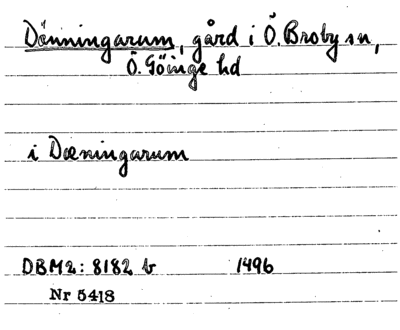 Dönningarum, gård i Ö. Broby sn,
Ö. Göinge hd
i Dœningarum
DBM2: 8182 b 1496
Nr 5418